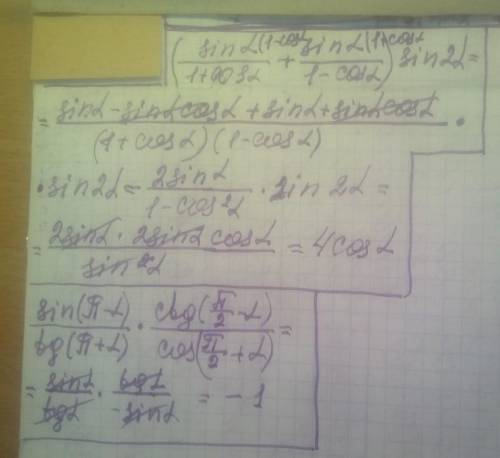 (sinα(1-cosα)/(1+cosα) + sinα(1+cosα)/(1-cosα)) sin2α =
= (sinα - sinα cosα + sinα + sinα cosα)/((1+cosα)(1-cosα)) ·
· sin2α = 2sinα/(1-cos²α) · sin2α =
= (2sinα · 2sinα cosα)/sin²α = 4cosα
sin(π-α)/tg(π+α) · ctg(π/2-α)/cos(π/2+α) =
= sinα/tgα · tgα/-sinα = -1